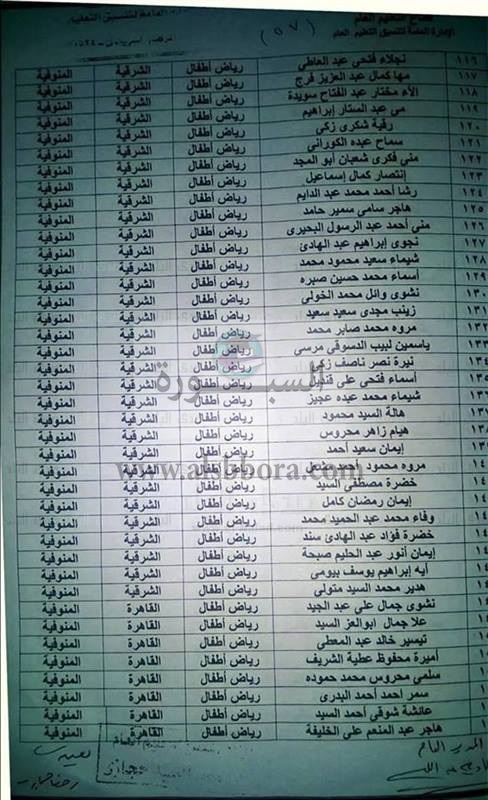 قطاع التعليم العام
الإدارة العامة لتنسيق التعليم العام
(٥٧)
١١٦ نجلاء فتحى عبد العاطى رياض أطفال الشرقية المنوفية
١١٧ مها كمال عبد العزيز فرج رياض أطفال الشرقية المنوفية
١١٨ الأم مختار عبد الفتاح سويدة رياض أطفال الشرقية المنوفية
١١٩ مى عبد الستار إبراهيم رياض أطفال الشرقية المنوفية
١٢٠ رقية شكرى زكى رياض أطفال الشرقية المنوفية
١٢١ سماح عبده الكورانى رياض أطفال الشرقية المنوفية
١٢٢ منى فكرى شعبان أبو المجد رياض أطفال الشرقية المنوفية
١٢٣ إنتصار كمال إسماعيل رياض أطفال الشرقية المنوفية
١٢٤ رشا أحمد محمد عبد الدايم رياض أطفال الشرقية المنوفية
١٢٥ هاجر سامى سمير حامد رياض أطفال الشرقية المنوفية
١٢٦ منى أحمد عبد الرسول البحيرى رياض أطفال الشرقية المنوفية
١٢٧ نجوى إبراهيم عبد الهادئ رياض أطفال الشرقية المنوفية
١٢٨ شيماء سعيد محمود محمد رياض أطفال الشرقية المنوفية
١٢٩ أسماء محمد حسين صبره رياض أطفال الشرقية المنوفية
١٣٠ نشوى وائل محمد الخولى رياض أطفال الشرقية المنوفية
١٣١ زينب مجدى سعيد سعيد رياض أطفال الشرقية المنوفية
١٣٢ مروه محمد صابر محمد رياض أطفال الشرقية المنوفية
١٣٣ ياسمين لبيب الدسوقى مرسى رياض أطفال الشرقية المنوفية
١٣٤ نيرة نصر ناصف زكى رياض أطفال الشرقية المنوفية
١٣٥ أسماء فتحى على قنديل رياض أطفال الشرقية المنوفية
١٣ شيماء محمد عبده عجيز رياض أطفال الشرقية المنوفية
١٣ هالة السيد محمود رياض أطفال الشرقية المنوفية
١٣ هيام زاهر محروس رياض أطفال الشرقية المنوفية
١٣ إيمان سعيد أحمد رياض أطفال الشرقية المنوفية
١٤ مروه محمود أحمد رياض أطفال الشرقية المنوفية
١٤ خضرة مصطفى السيد رياض أطفال الشرقية المنوفية
١٤ إيمان رمضان كامل رياض أطفال الشرقية المنوفية
١٤ وفاء محمد عبد الحميد محمد رياض أطفال الشرقية المنوفية
١٤ خضرة فؤاد عبد الهادئ سند رياض أطفال الشرقية المنوفية
١٤ إيمان أنور عبد الحليم صبحة رياض أطفال الشرقية المنوفية
١٤ آيه إبراهيم يوسف بيومى رياض أطفال الشرقية المنوفية
١٤ هدير محمد السيد متولى رياض أطفال الشرقية المنوفية
١٤ نشوى جمال على عبد الجيد رياض أطفال القاهرة المنوفية
١٤ علا جمال أبوالعز السيد رياض أطفال القاهرة المنوفية
١٥ تيسير خالد عبد المعطى رياض أطفال القاهرة المنوفية
١٥ أميرة محفوظ عطية الشريف رياض أطفال القاهرة المنوفية
١ سلمى محروس محمد حموده رياض أطفال القاهرة المنوفية
١ سمر أحمد أحمد البدرى رياض أطفال القاهرة المنوفية
١ عائشة شوقى أحمد السيد رياض أطفال القاهرة المنوفية
١ هاجر عبد المنعم على الخليفة رياض أطفال القاهرة المنوفية
السبورة
www.alsbbora.com
المدير العام
حجازى